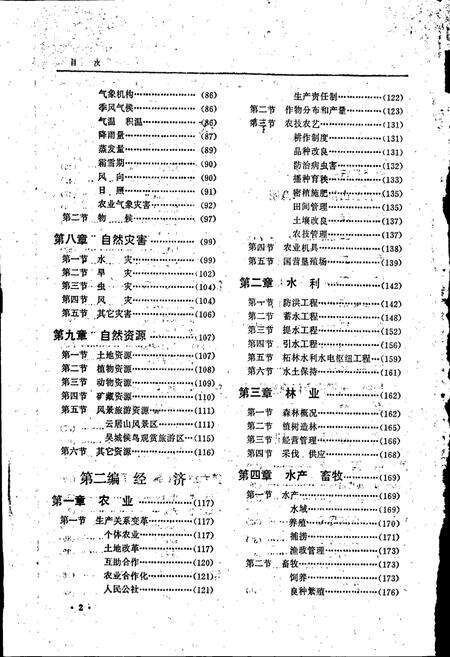 目 次
气象机构……………… (86)
季风气候……………… (86)
气温 积温……………(86)
降雨量………………… (87)
蒸发量………………… (89)
霜雪期………………… (90)
风 向………………… (90)
日 照………………… (91)
农业气象灾害………… (92)
第二节 物 候……………… (97)
第八章 自然灾害…………… (99)
第一节 水 灾……………… (99)
第二节 旱 灾………………(102)
第三节 虫 灾………………(104)
第四节 风 灾………………(104)
第五节 其它灾害………………(106)
第九章 自然资源……………(107)
第一节 土地资源………………(107)
第二节 植物资源………………(108)
第三节 动物资源………………(109)
第四节 矿藏资源………………(110)
第五节 风景旅游资源…………(111)
云居山风景区…………(111)
吴城候鸟观赏旅游区…(115)
第六节 其它资源………………(116)
第二编 经 济
第一章 农 业………………(117)
第一节 生产关系变革…………(117)
个体农业………………(117)
土地改革………………(117)
互助合作………………(120)
农业合作化……………(121)
人民公社………………(121)
· 2 ·
生产责任制……………(122)
第二节 作物分布和产量………(123)
第三节 农技农艺………………(131)
耕作制度………………(131)
品种改良………………(131)
防治病虫害……………(132)
播种育秧………………(133)
密植施肥………………(135)
田间管理………………(135)
土壤改良………………(137)
农技管理………………(137)
第四节 农业机具………………(138)
第五节 国营垦殖场……………(139)
第二章 水 利………………(142)
第一节 防洪工程………………(142)
第二节 蓄水工程………………(148)
第三节 提水工程………………(152)
第四节 引水工程………………(156)
第五节 柘林水利水电枢纽工程…(159)
第六节 水土保持………………(161)
第三章 林 业………………(162)
第一节 森林概况………………(162)
第二节 植树造林………………(165)
第三节 经营管理………………(166)
第四节 采伐、供应……………(168)
第四章 水产 畜牧…………(169)
第一节 水产……………………(169)
水域……………………(169)
养殖……………………(170)
捕捞……………………(171)
渔政管理………………(173)
第二节 畜牧……………………(173)
饲养……………………(173)
良种繁殖………………(176)